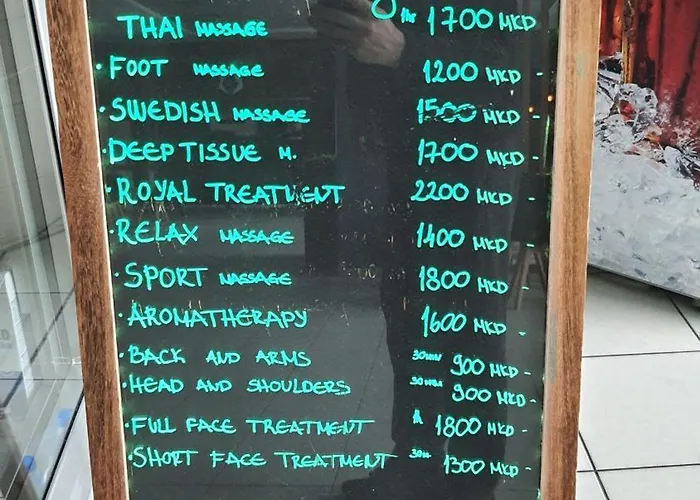 THAI MASSAGE 1700 MKD
· FOOT MASSAGE 1200 MKD -
· SWEDISH MASSAGE 1500 MKD -
· DEEP TISSUE M. 1700 MKD -
· ROYAL TREATMENT 2200 MKD -
· RELAX MASSAGE 1400 MKD -
· SPORT MASSAGE 1800 MKD -
· AROMATHERAPY 1600 MKD -
· BACK AND ARMS 30min 900 MKD -
· HEAD AND SHOULDERS 30min 900 MKD -
· FULL FACE TREATMENT 1800 MKD -
· SHORT FACE TREATMENT 1300 MKD -